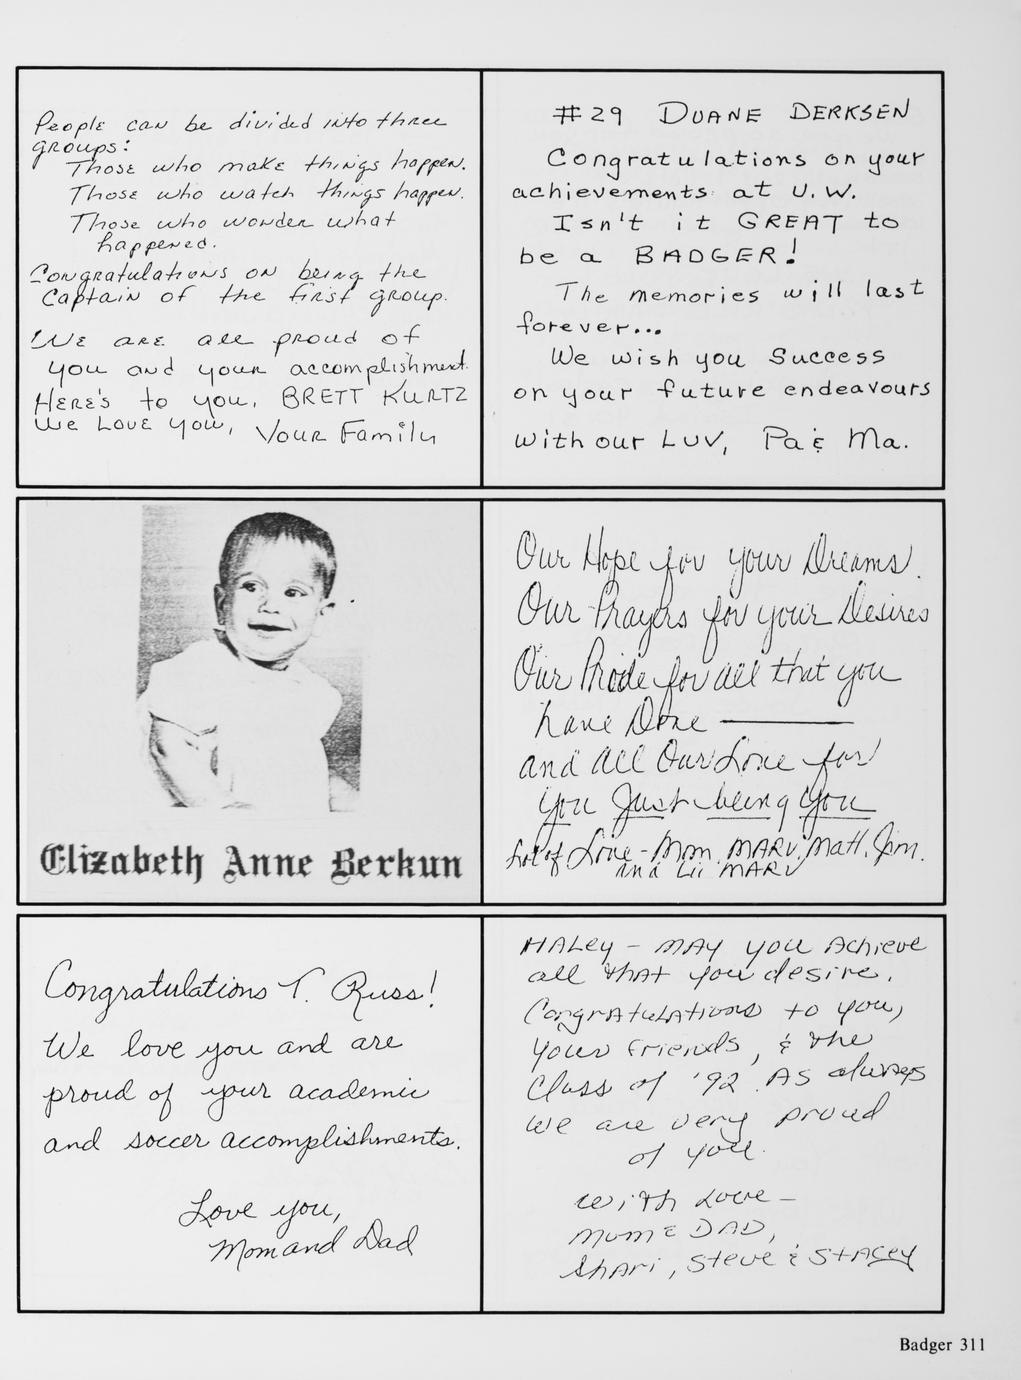 People can be divided into three
groups:
Those who make things happen.
Those who watch things happen.
Those who wonder what
happened.
Congratulations on being the
Captain of the first group.
We are all proud of
you and your accomplishment.
Here's to you, BRETT KURTZ
We Love You, Your Family
#29 DUANE DERKSEN
Congratulations on your
achievements at U.W.
Isn't it GREAT to
be a BADGER!
The memories will last
forever...
We wish you Success
on your future endeavours
With our LUV, Pa & Ma.
Elizabeth Anne Berkun
Our Hope for your Dreams.
Our Prayers for your Desires
Our Pride for all that you
have Done —
and all Our Love for
You Just being You
Lot of Love - Mom, MARV, Matt, Jim.
and Lil MARV
Congratulations T. Russ!
We love you and are
proud of your academic
and soccer accomplishments.
Love you,
Mom and Dad
HALey - MAY you Achieve
all thAt you desire.
CongrAtulAtions to you,
your friends, & the
Class of '92. As always
we are very proud
of you.
With Love -
Mom & DAD,
ShAri, Steve & StACey
Badger 311